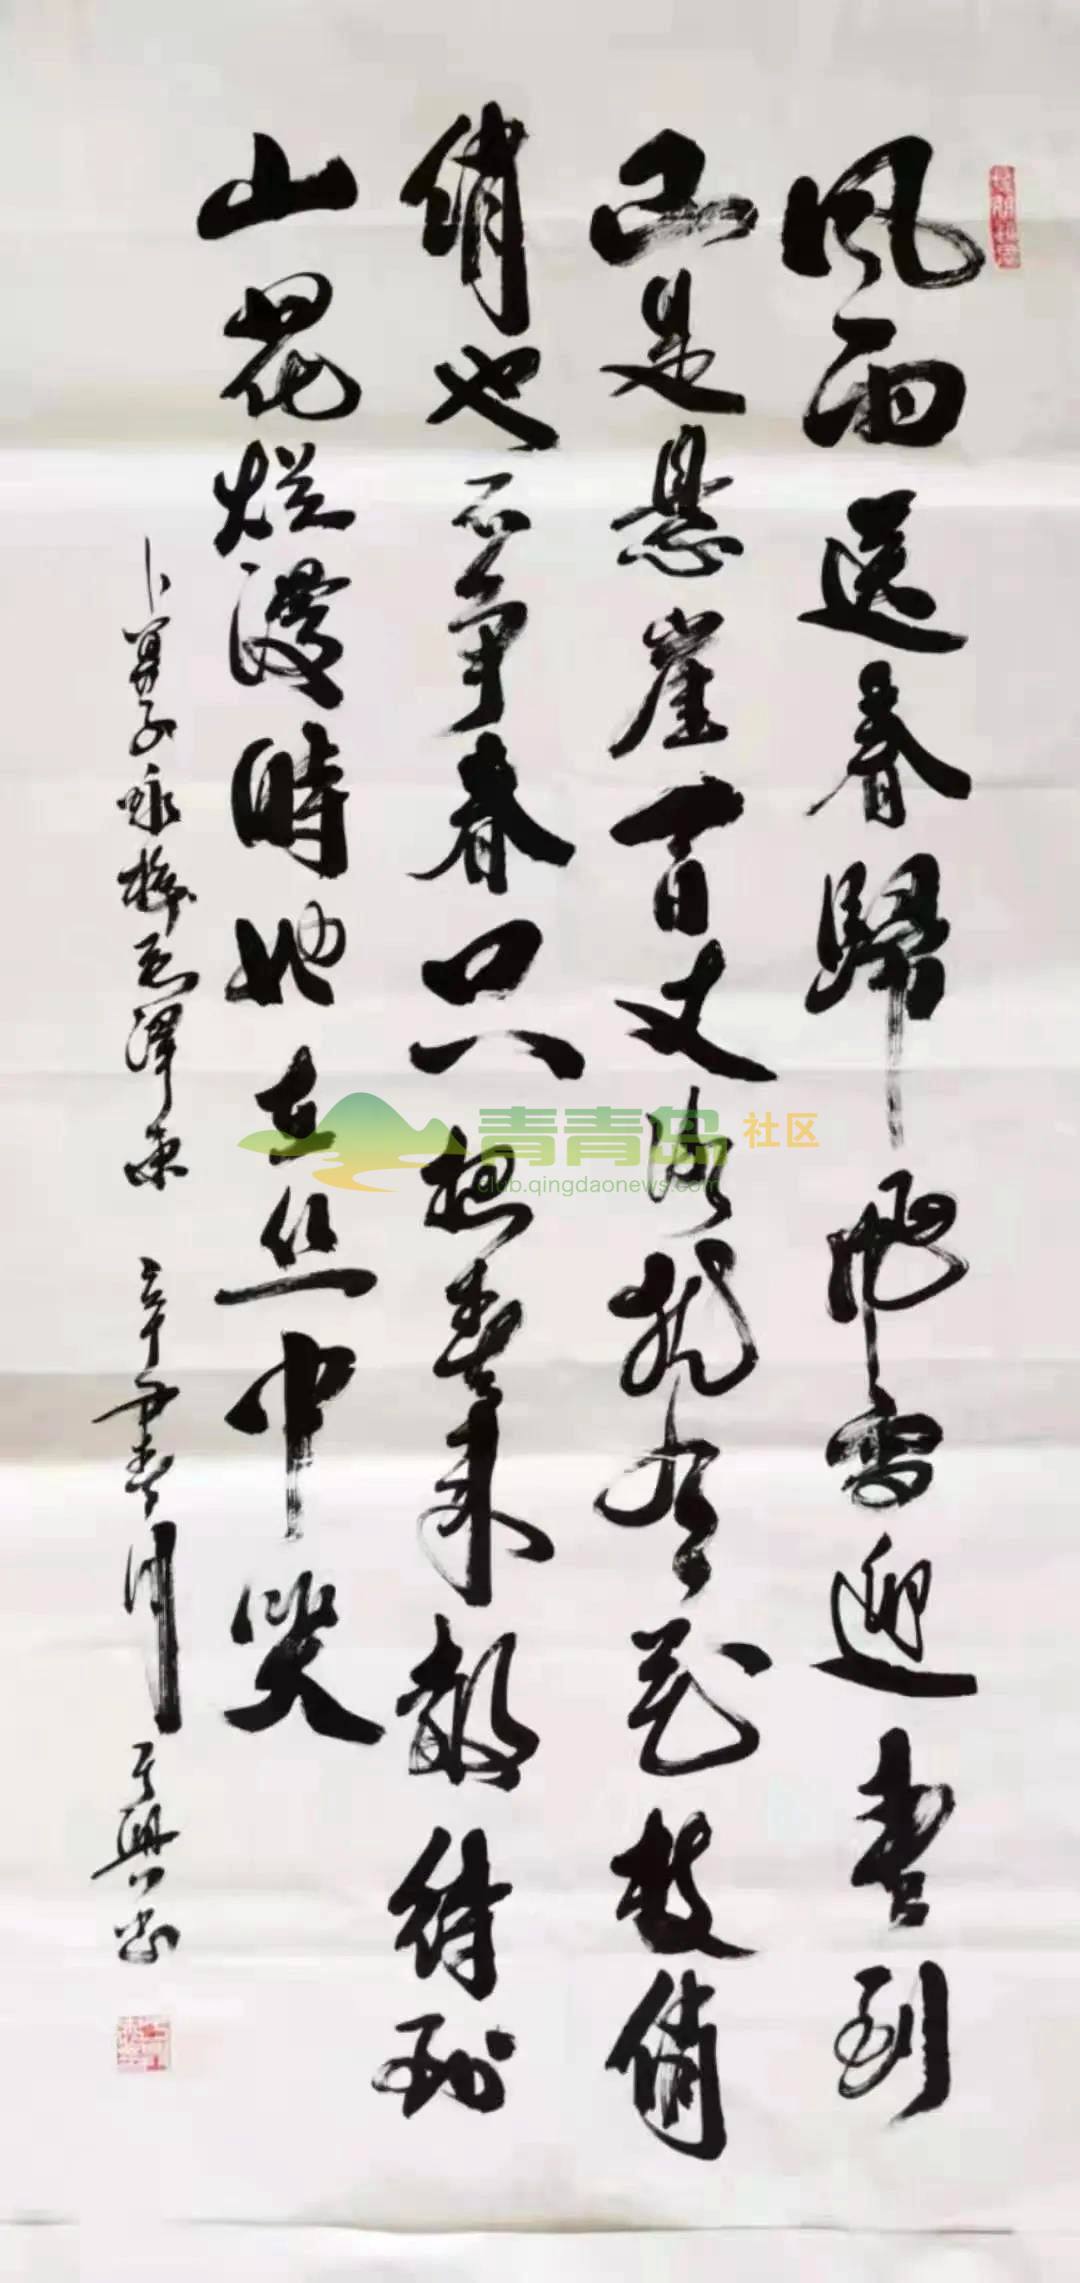 风雨送春歸飛雪迎春到
已是悬崖百丈冰犹有花枝俏
俏也不争春只把春来報待到
山花烂漫時她在丛中笑
卜算子咏梅毛泽东 辛丑春月 興书
青青岛社区
club.qingdaonews.com